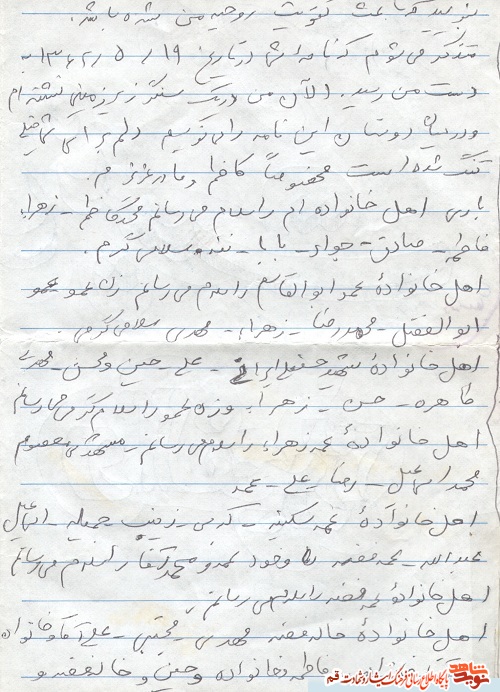 بنویسید که باعث تقویت روحیه من شده باشد.
متذکر می شوم که نامه شما در تاریخ ۱۹/۵/۱۳۶۲ به
دست من رسید. الآن من در یک سنگر زیرزمینی نشسته ام
و در میان دوستان این نامه را می نویسم دلم برای شما خیلی
تنگ شده است مخصوصاً کاظم و مادر عزیزم.
باری اهل خانواده ام را سلام می رسانم محمد کاظم - زهرا
فاطمه - صادق - جواد - بابا - ننه سلامی گرم.
اهل خانوادهٔ عمو ابوالقاسم را سلام می رسانم زن عمو
ابوالفضل - محمدرضا - زهراء - مهدی سلامی گرمی.
اهل خانوادهٔ - علی - حسین و محسن - مهدی
طاهره - حسن - زهرا و زن عمو را سلام گرمی می رسانم
اهل خانوادهٔ عمه زهراء را سلام می رسانم - معصوم
محمد اسماعیل - رضا - علی - عمه
اهل خانوادهٔ عمه سکینه - کرمی - زینب - جمیله - اسماعیل
عبدالله - عمه و محمدآقا را سلام می رسانم
اهل خانوادهٔ عمه فضه را سلام می رسانم
اهل خانوادهٔ خاله فضه مهدی - مجتبی - علی آقا و خانواده
فاطمه و خانواده و حسین و خاله
نوید شاهد
پایگاه اطلاع رسانی فرهنگ ایثار و شهادت - قم